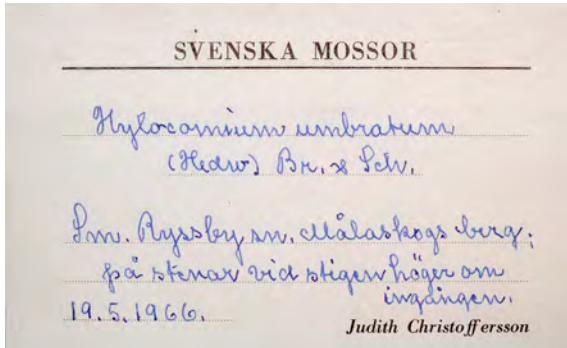 SVENSKA MOSSOR
Hylocomium umbratum
(Hedw) Br. & Sch.
Sm. Ryssby sn. Målaskogs berg;
på stenar vid stigen höger om
ingången.
19.5.1966.
Judith Christoffersson